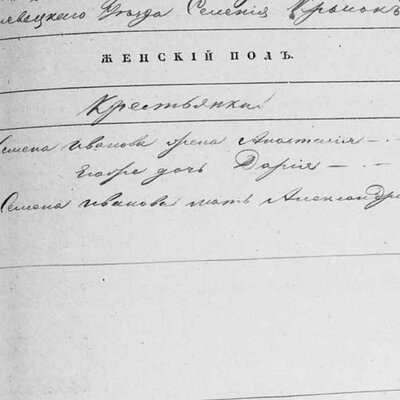 левацкаго Уѣзда Селенія Крынокъ
ЖЕНСКІЙ ПОЛЪ.
Крестьянки
Семена Иванова жена Анастасія —
дочь Дарія —
Семена Иванова мать Александра